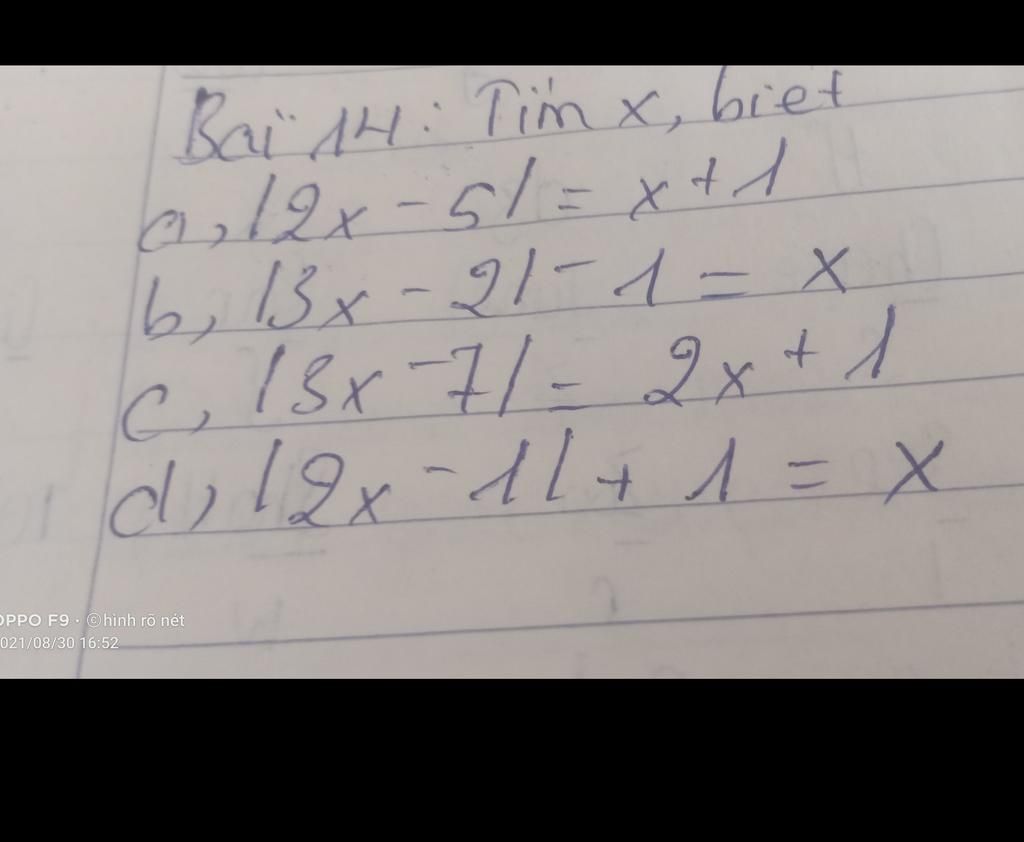 Bài 14: Tìm x, biết
a, |2x - 5| = x + 1
b, |3x - 2| - 1 = x
c, |3x - 7| = 2x + 1
d, |2x - 1| + 1 = x
OPPO F9 · ©hình rõ nét
2021/08/30 16:52